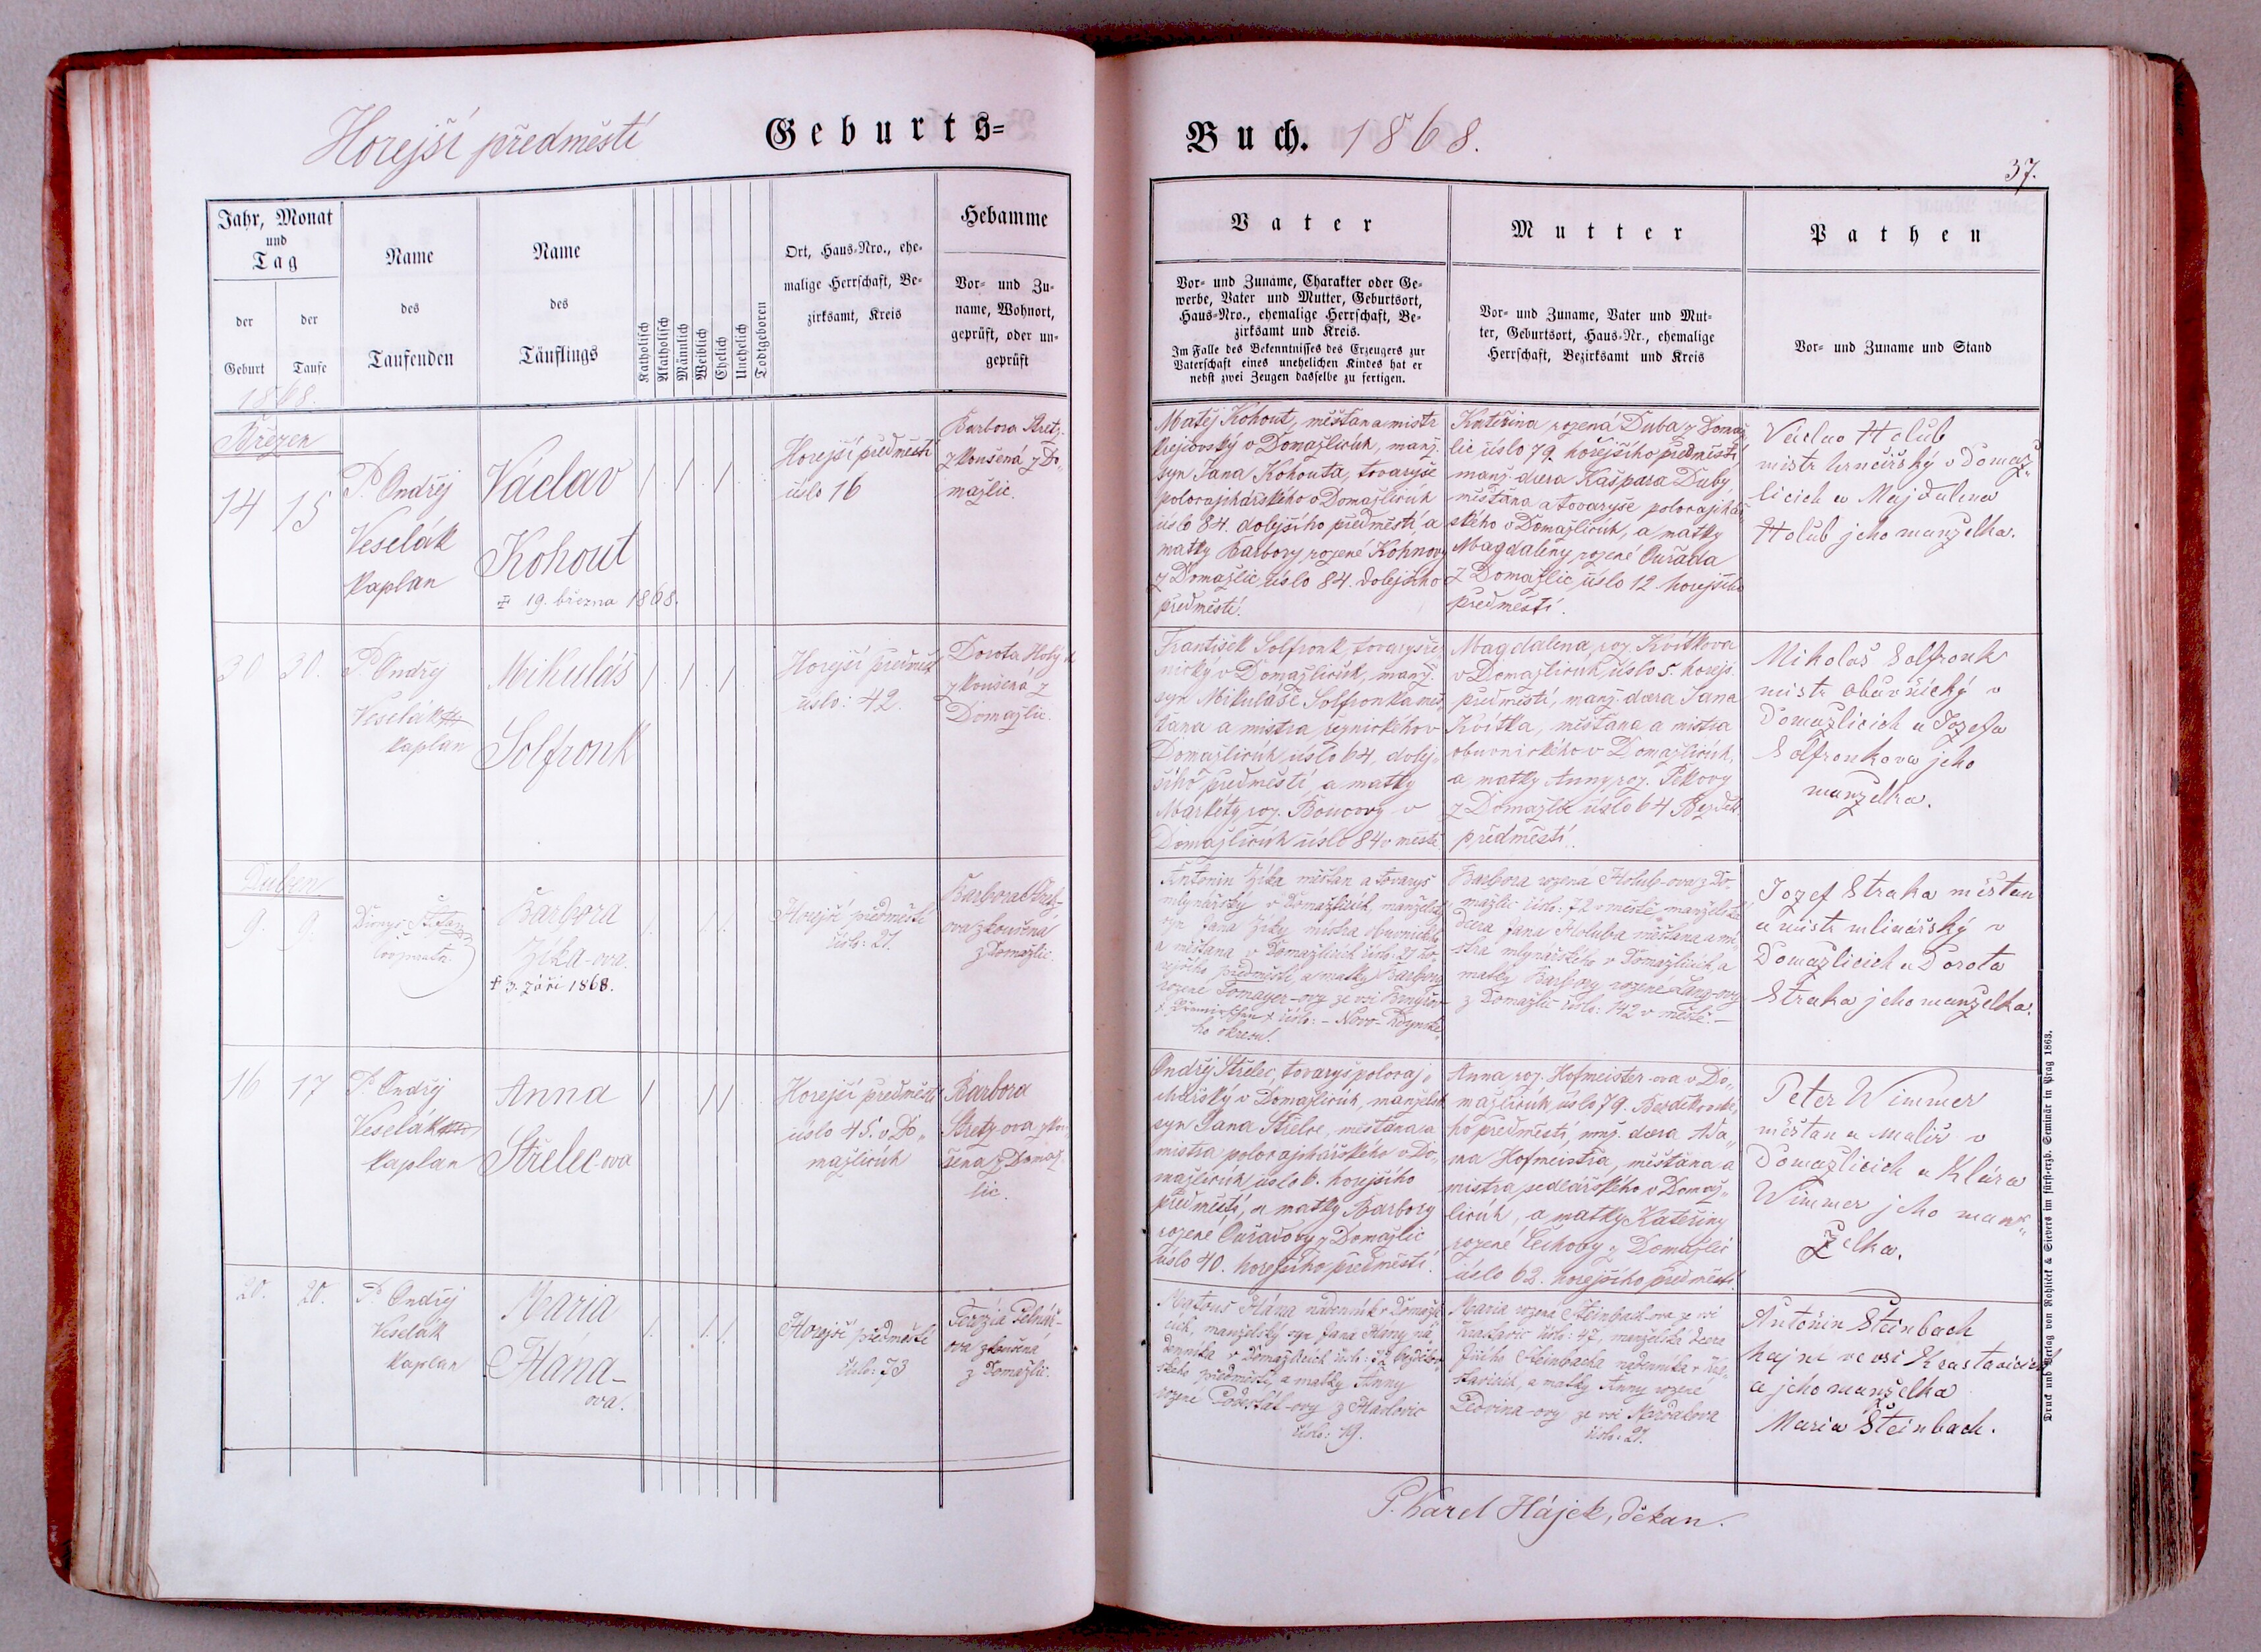 Horejší předměstí
Geburts=
Buch. 1868.
37.
Jahr, Monat
und
Tag
der
Geburt
der
Taufe
Name
des
Taufenden
Name
des
Täuflings
Katholisch
Akatholisch
Männlich
Weiblich
Ehelich
Unehelich
Todtgeboren
Ort, Haus-Nro., ehe-
malige Herrschaft, Be-
zirksamt, Kreis
Hebamme
Vor- und Zu-
name, Wohnort,
geprüft, oder un-
geprüft
Vater
Vor- und Zuname, Charakter oder Ge-
werbe, Vater und Mutter, Geburtsort,
Haus-Nro., ehemalige Herrschaft, Be-
zirksamt und Kreis.
Im Falle des Bekenntnisses des Erzeugers zur
Vaterschaft eines unehelichen Kindes hat er
nebst zwei Zeugen dasselbe zu fertigen.
Mutter
Vor- und Zuname, Vater und Mut-
ter, Geburtsort, Haus-Nr., ehemalige
Herrschaft, Bezirksamt und Kreis
Pathen
Vor- und Zuname und Stand
1868.
Březen
14 15
P. Ondřej
Veselák
kaplan
Václav
Kohout
19. března 1868.
Horejší předměstí
číslo 16
Barbora Stretz
zkoušená z Do-
mažlic.
Matěj Kohout, měšťan a mistr
krejčovský v Domažlicích, manž.
syn Jana Kohouta, tovaryše
polorajchářského v Domažlicích
číslo 84. dolejšího předměstí, a
matky Barbory rozené Kohnovy
z Domažlic číslo 84. dolejšího
předměstí.
Kateřina rozená Duba z Domaž
lic číslo 79 hořejšího předměstí,
manž. dcera Kašpara Duby,
měšťana a tovaryše polorajchář-
ského v Domažlicích, a matky
Magdaleny rozené Ouřada
z Domažlic číslo 12 horejšího
předměstí.
Václav Holub
mistr hrnčířský v Domaž-
licích a Majdalena
Holub jeho manželka.
30 30.
P. Ondřej
Veselák
kaplan
Mikuláš
Solfronk
Horejší předměstí
číslo: 42.
Dorota
zkoušená z
Domažlic.
František Solfronk, tovaryš řez
nický v Domažlicích, manž.
syn Mikuláše Solfronka měš
ťana a mistra řeznického v
Domažlicích číslo 64, dolej-
šího předměstí, a matky
Markéty roz. Boucovy v
Domažlicích číslo 84 v městě.
Magdalena roz. Kvítkova
v Domažlicích číslo 5. horejš.
předměstí, manž. dcera Jana
Kvítka, měšťana a mistra
obuvnického v Domažlicích,
a matky Anny roz. Pekovy
z Domažlic číslo 64 Bezděk.
předměstí.
Mikolaš Solfronk
mistr obuvnický v
Domažlicich a Jozefa
Solfronkova jeho
manzelka.
Duben
9. 9.
Dionys Štefan
Barbora
Zíka-ova.
3. září 1868.
Horejší předměstí
číslo: 21.
Barbora Stretz-
ova zkoušená
z Domažlic.
Antonin Zíka měšťan a tovaryš
mlynářský v Domažlicích, manželský
syn Jana Zíky mistra obuvnického
a měšťana v Domažlicích číslo: 21 ho
rejšího předměstí, a matky Barbory
rozené Tomayer-ovy ze vsi
číslo: - Novo-Kdynské
ho okresu.
Barbora rozená Holub-ova z Do-
mažlic číslo: 72 v městě, manželská
dcera Jana Holuba měšťana a mi-
stra mlynářského v Domažlicích, a
matky Barbory rozené Lang-ovy
z Domažlic číslo: 142 v městě. -
Jozef Straka měšťan
a mistr mlinářský v
Domažlicich a Dorota
Straka jeho manzelka.
16 17
P. Ondřej
Veselák
kaplan
Anna
Střelec-ova
Horejší předměstí
číslo 45. v Do-
mažlicích
Barbora
Stretz-ova zkou-
šená z Domaž-
lic.
Ondřej Střelec, tovaryš poloraj-
chářský v Domažlicích, manželský
syn Jana Střelce, měšťana a
mistra polorajchářského v Do-
mažlicích číslo 6. horejšího
předměstí, a matky Barbory
rozené Ouřadovy z Domažlic
číslo 40. horejšího předměstí.
Anna roz. Hofmeister-ova v Do-
mažlicích číslo 79. Bezděkovské-
ho předměstí, manž. dcera Ada-
ma Hofmeistra, měšťana a
mistra sedlářského v Domaž-
licích, a matky Kateřiny
rozené Čechovy z Domažlic
číslo 62. horejšího předměstí.
Peter Wimmer
měšťan a malíř v
Domažlicich a Klára
Wimmer jeho man-
želka.
20. 20.
P. Ondřej
Veselák
kaplan
Maria
Hána-
ova.
Horejší předměstí
číslo: 73
Terezia Pelnář-
ova zkoušená
z Domažlic.
Matouš Hána nádenník v Domažli
cích, manželský syn Jana Hány ná
denníka v Domažlicích číslo: 72 bezděkov
ského předměstí, a matky Anny
rozené z Havlovic
číslo: 19.
Maria rozená Steinbach-ova ze vsi
Chrastavic číslo: 47, manželská dcera
Jiřího Steinbacha nádenníka v Chra-
stavicích, a matky Anny rozené
Ledvina-ovy ze vsi
číslo: 21.
Antonin Steinbach
hajní ve vsi Krastavicich
a jeho manželka
Maria Šteinbach.
P. Karel Hájek, děkan.
Druck und Verlag von Rohliček & Sievers im fürst-erzb. Seminär in Prag 1863.